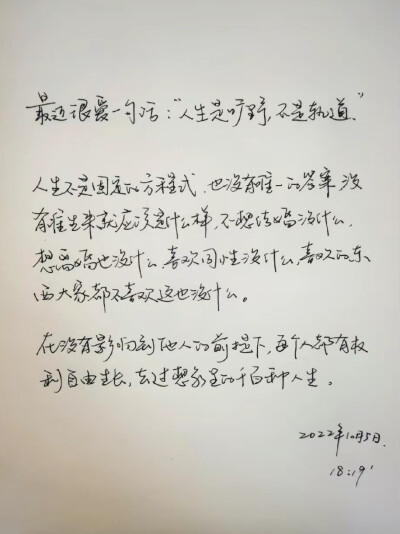 最近很爱一句话:“人生是旷野,不是轨道”
人生不是固定的方程式,也没有唯一的答案,没
有谁生来就应该是什么样,不想结婚没什么,
想离婚也没什么,喜欢同性没什么,喜欢的东
西大家都不喜欢这也没什么。
在没有影响到他人的前提下,每个人都有权
利自由生长,去过想象里的千百种人生。
2022年10月5日.
18:19'